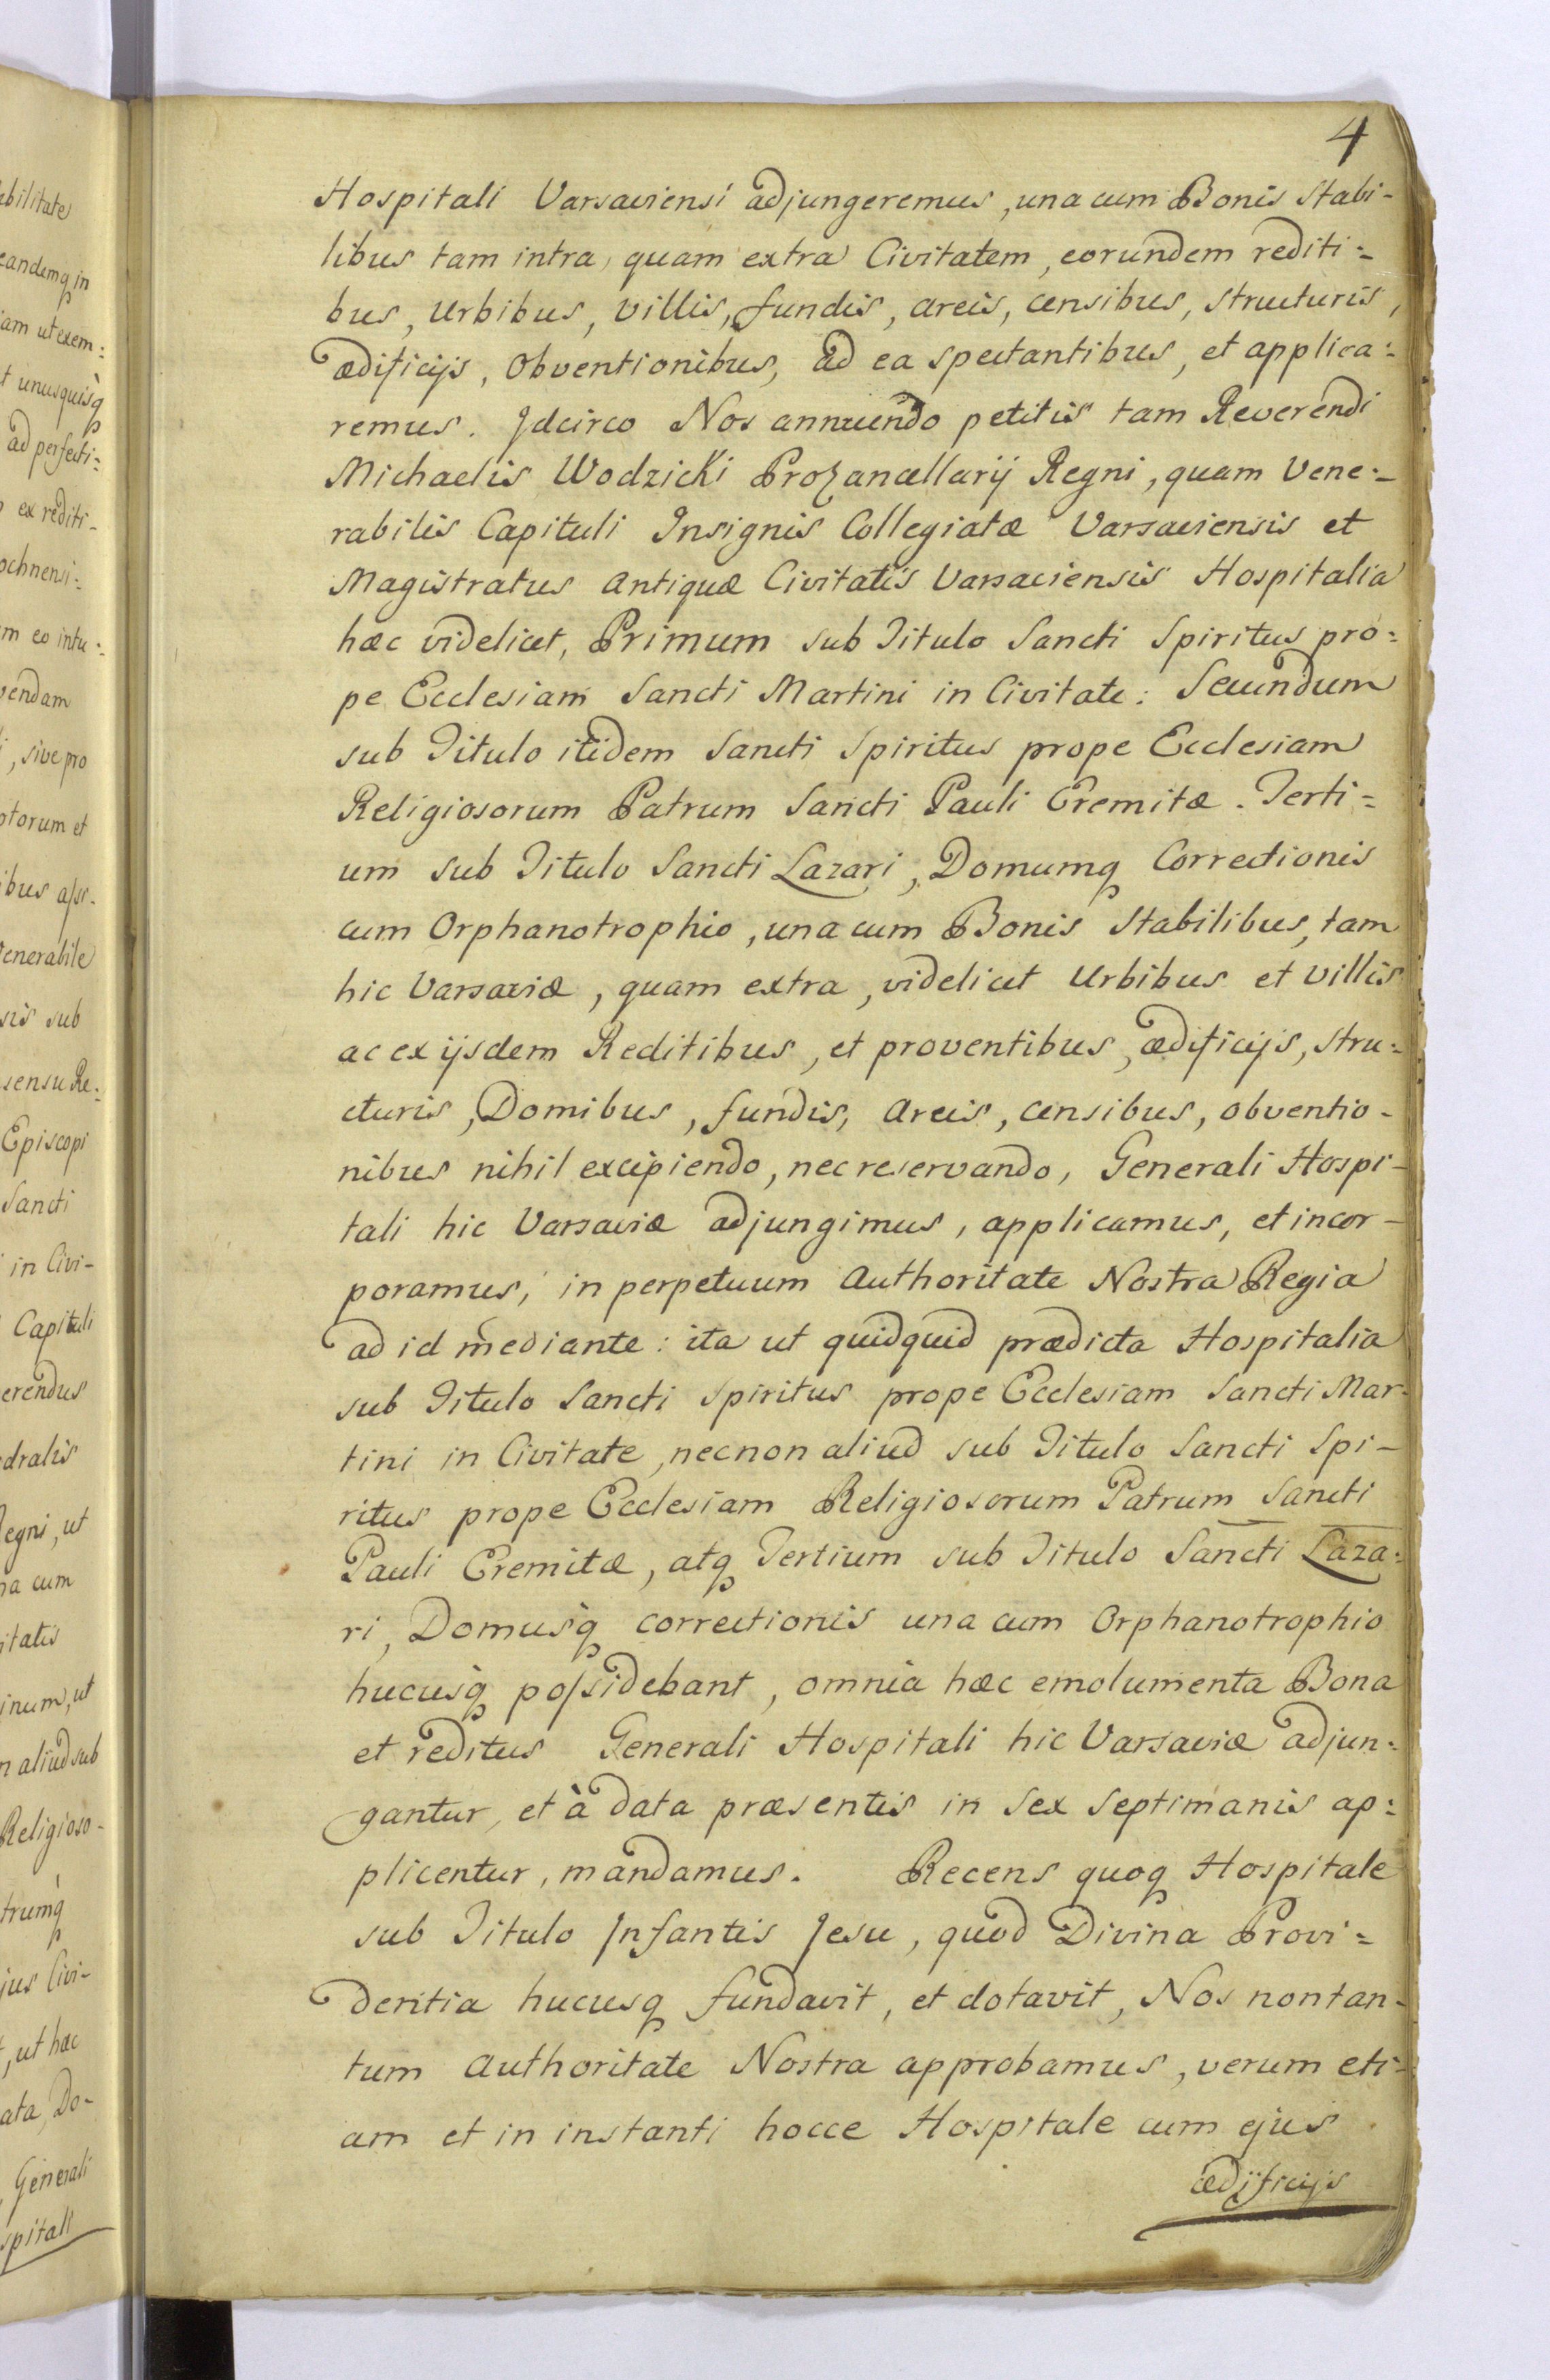 4
Hospitali Varsaviensi adjungeremus, una cum Bonis Stabi-
libus tam intra, quam extra Civitatem, eorundem rediti=
bus, Urbibus, villis, fundis, areis, censibus, structuris,
ædificijs, obventionibus, ad ea spectantibus, et applica=
remus. Idcirco Nos annuendo petitis tam Reverendi
Michaelis Wodzicki Prozancellarij Regni, quam Vene=
rabilis Capituli Insignis Collegiatæ Varsaviensis et
Magistratus Antiquæ Civitatis Varsaviensis Hospitalia
hæc videlicet, Primum sub Titulo Sancti Spiritus pro=
pe Ecclesiam Sancti Martini in Civitate: Secundum
sub Titulo itidem Sancti Spiritus prope Ecclesiam
Religiosorum Patrum Sancti Pauli Eremitæ. Terti=
um sub Titulo Sancti Lazari, Domumq Correctionis
cum Orphanotrophio, una cum Bonis Stabilibus, tam
hic Varsaviæ, quam extra, videlicet Urbibus et villis
ac ex ijsdem Reditibus, et proventibus, ædificijs, stru=
cturis, Domibus, fundis, areis, censibus, obventio-
nibus nihil excipiendo, nec reservando, Generali Hospi-
tali hic Varsaviæ adjungimus, applicamus, et incor-
poramus, in perpetuum Authoritate Nostra Regia
ad id mediante: ita ut quidquid prædicta Hospitalia
sub Titulo Sancti Spiritus prope Ecclesiam Sancti Mar-
tini in Civitate, necnon aliud sub Titulo Sancti Spi-
ritus prope Ecclesiam Religiosorum Patrum Sancti
Pauli Eremitæ, atq Tertium sub Titulo Sancti Laza=
ri, Domusq correctionis una cum Orphanotrophio
hucusq possidebant, omnia hæc emolumenta Bona
et reditus Generali Hospitali hic Varsaviæ adjun=
gantur, et à data præsentis in sex septimanis ap=
plicentur, mandamus. Recens quoq Hospitale
sub Titulo Infantis Jesu, quod Divina Provi=
dentia hucusq fundavit, et dotavit, Nos non tan-
tum Authoritate Nostra approbamus, verum eti-
am et in instanti hocce Hospitale cum ejus
ædificijs